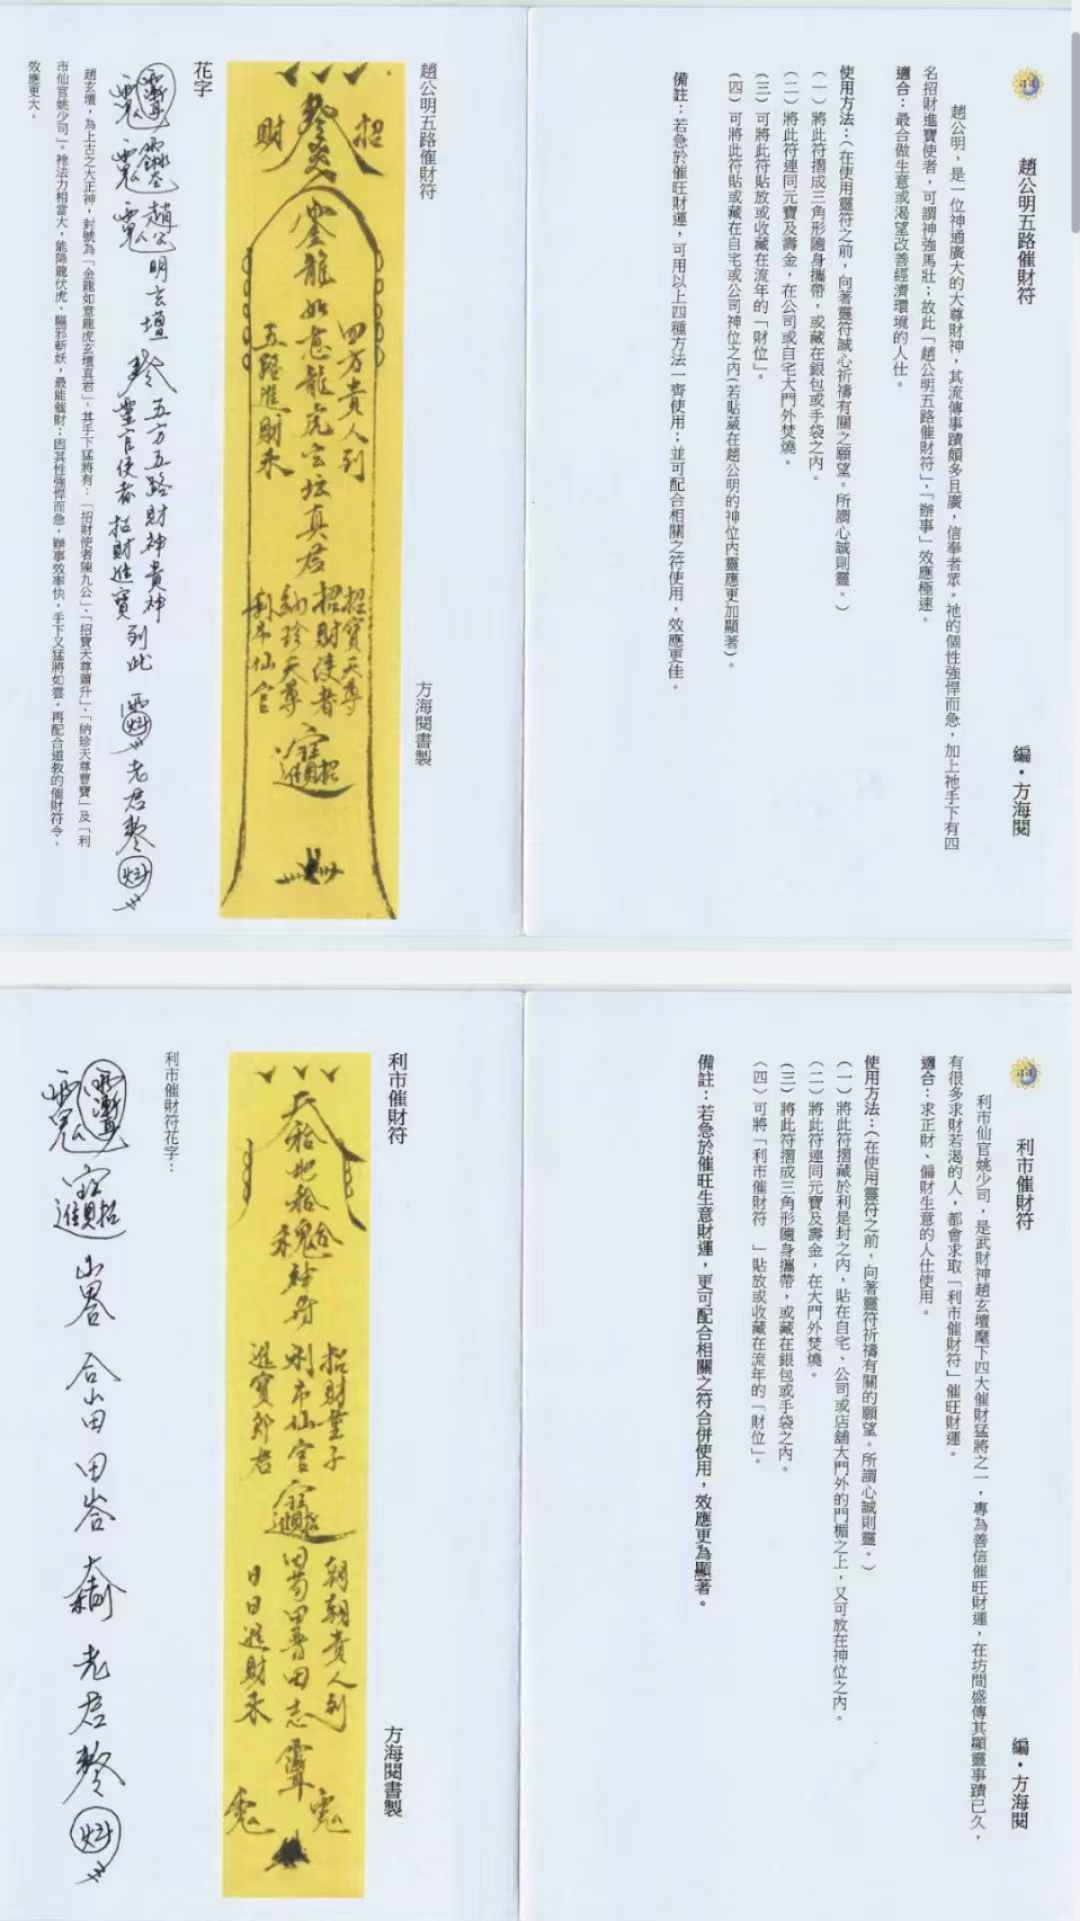 趙公明五路催財符
編・方海閱
趙公明，是一位神通廣大的大尊財神，其流傳事蹟頗多且廣，信奉者眾。祂的個性強悍而急，加上祂手下有四
名招財進寶使者，可謂神強馬壯；故此「趙公明五路催財符」，「辦事」效應極速。
適合：最合做生意或渴望改善經濟環境的人仕。
使用方法：（在使用靈符之前，向著靈符誠心祈禱有關之願望。所謂心誠則靈。）
（一）將此符摺成三角形隨身攜帶，或藏在銀包或手袋之內。
（二）將此符連同元寶及壽金，在公司或自宅大門外焚燒。
（三）可將此符貼放或收藏在流年的「財位」。
（四）可將此符貼或藏在自宅或公司神位之內（若貼藏在趙公明的神位內靈應更加顯著）。
備註：若急於催旺財運，可用以上四種方法一齊使用；並可配合相關之符使用，效應更佳。
趙公明五路催財符
方海閱書製
招
財
四方貴人到
龍如意龍虎玄坛真君
五路進財來
招寶天尊
招財使者
納珍天尊
利市仙官
花字
趙公明玄壇
五方五路財神貴神
靈官使者招財進寶
到此
老君
趙玄壇，為上古之大正神，封號為「金龍如意龍虎玄壇真君」，其手下猛將有：「招財使者陳九公」、「招寶天尊蕭升」、「納珍天尊曹寶」及「利
市仙官姚少司」。祂法力相當大，能降龍伏虎，驅邪斬妖，最能催財；因其性強悍而急，辦事效率快，手下又猛將如雲，再配合道教的催財符令，
效應更大。
利市催財符
編・方海閱
利市仙官姚少司，是武財神趙玄壇麾下四大催財猛將之一，專為善信催旺財運，在坊間盛傳其顯靈事蹟已久，
有很多求財若渴的人，都會求取「利市催財符」催旺財運。
適合：求正財、偏財生意的人仕使用。
使用方法：（在使用靈符之前，向著靈符祈禱有關的願望。所謂心誠則靈。）
（一）將此符摺藏於利是封之內，貼在自宅、公司或店舖大門外的門楣之上，又可放在神位之內。
（二）將此符連同元寶及壽金，在大門外焚燒。
（三）將此符摺成三角形隨身攜帶，或藏在銀包或手袋之內。
（四）可將「利市催財符」貼放或收藏在流年的「財位」。
備註：若急於催旺生意財運，更可配合相關之符合併使用，效應更為顯著。
利市催財符
方海閱書製
招財童子
利市仙官
進寶郎君
朝朝貴人到
日日進財來
利市催財符花字：
老君